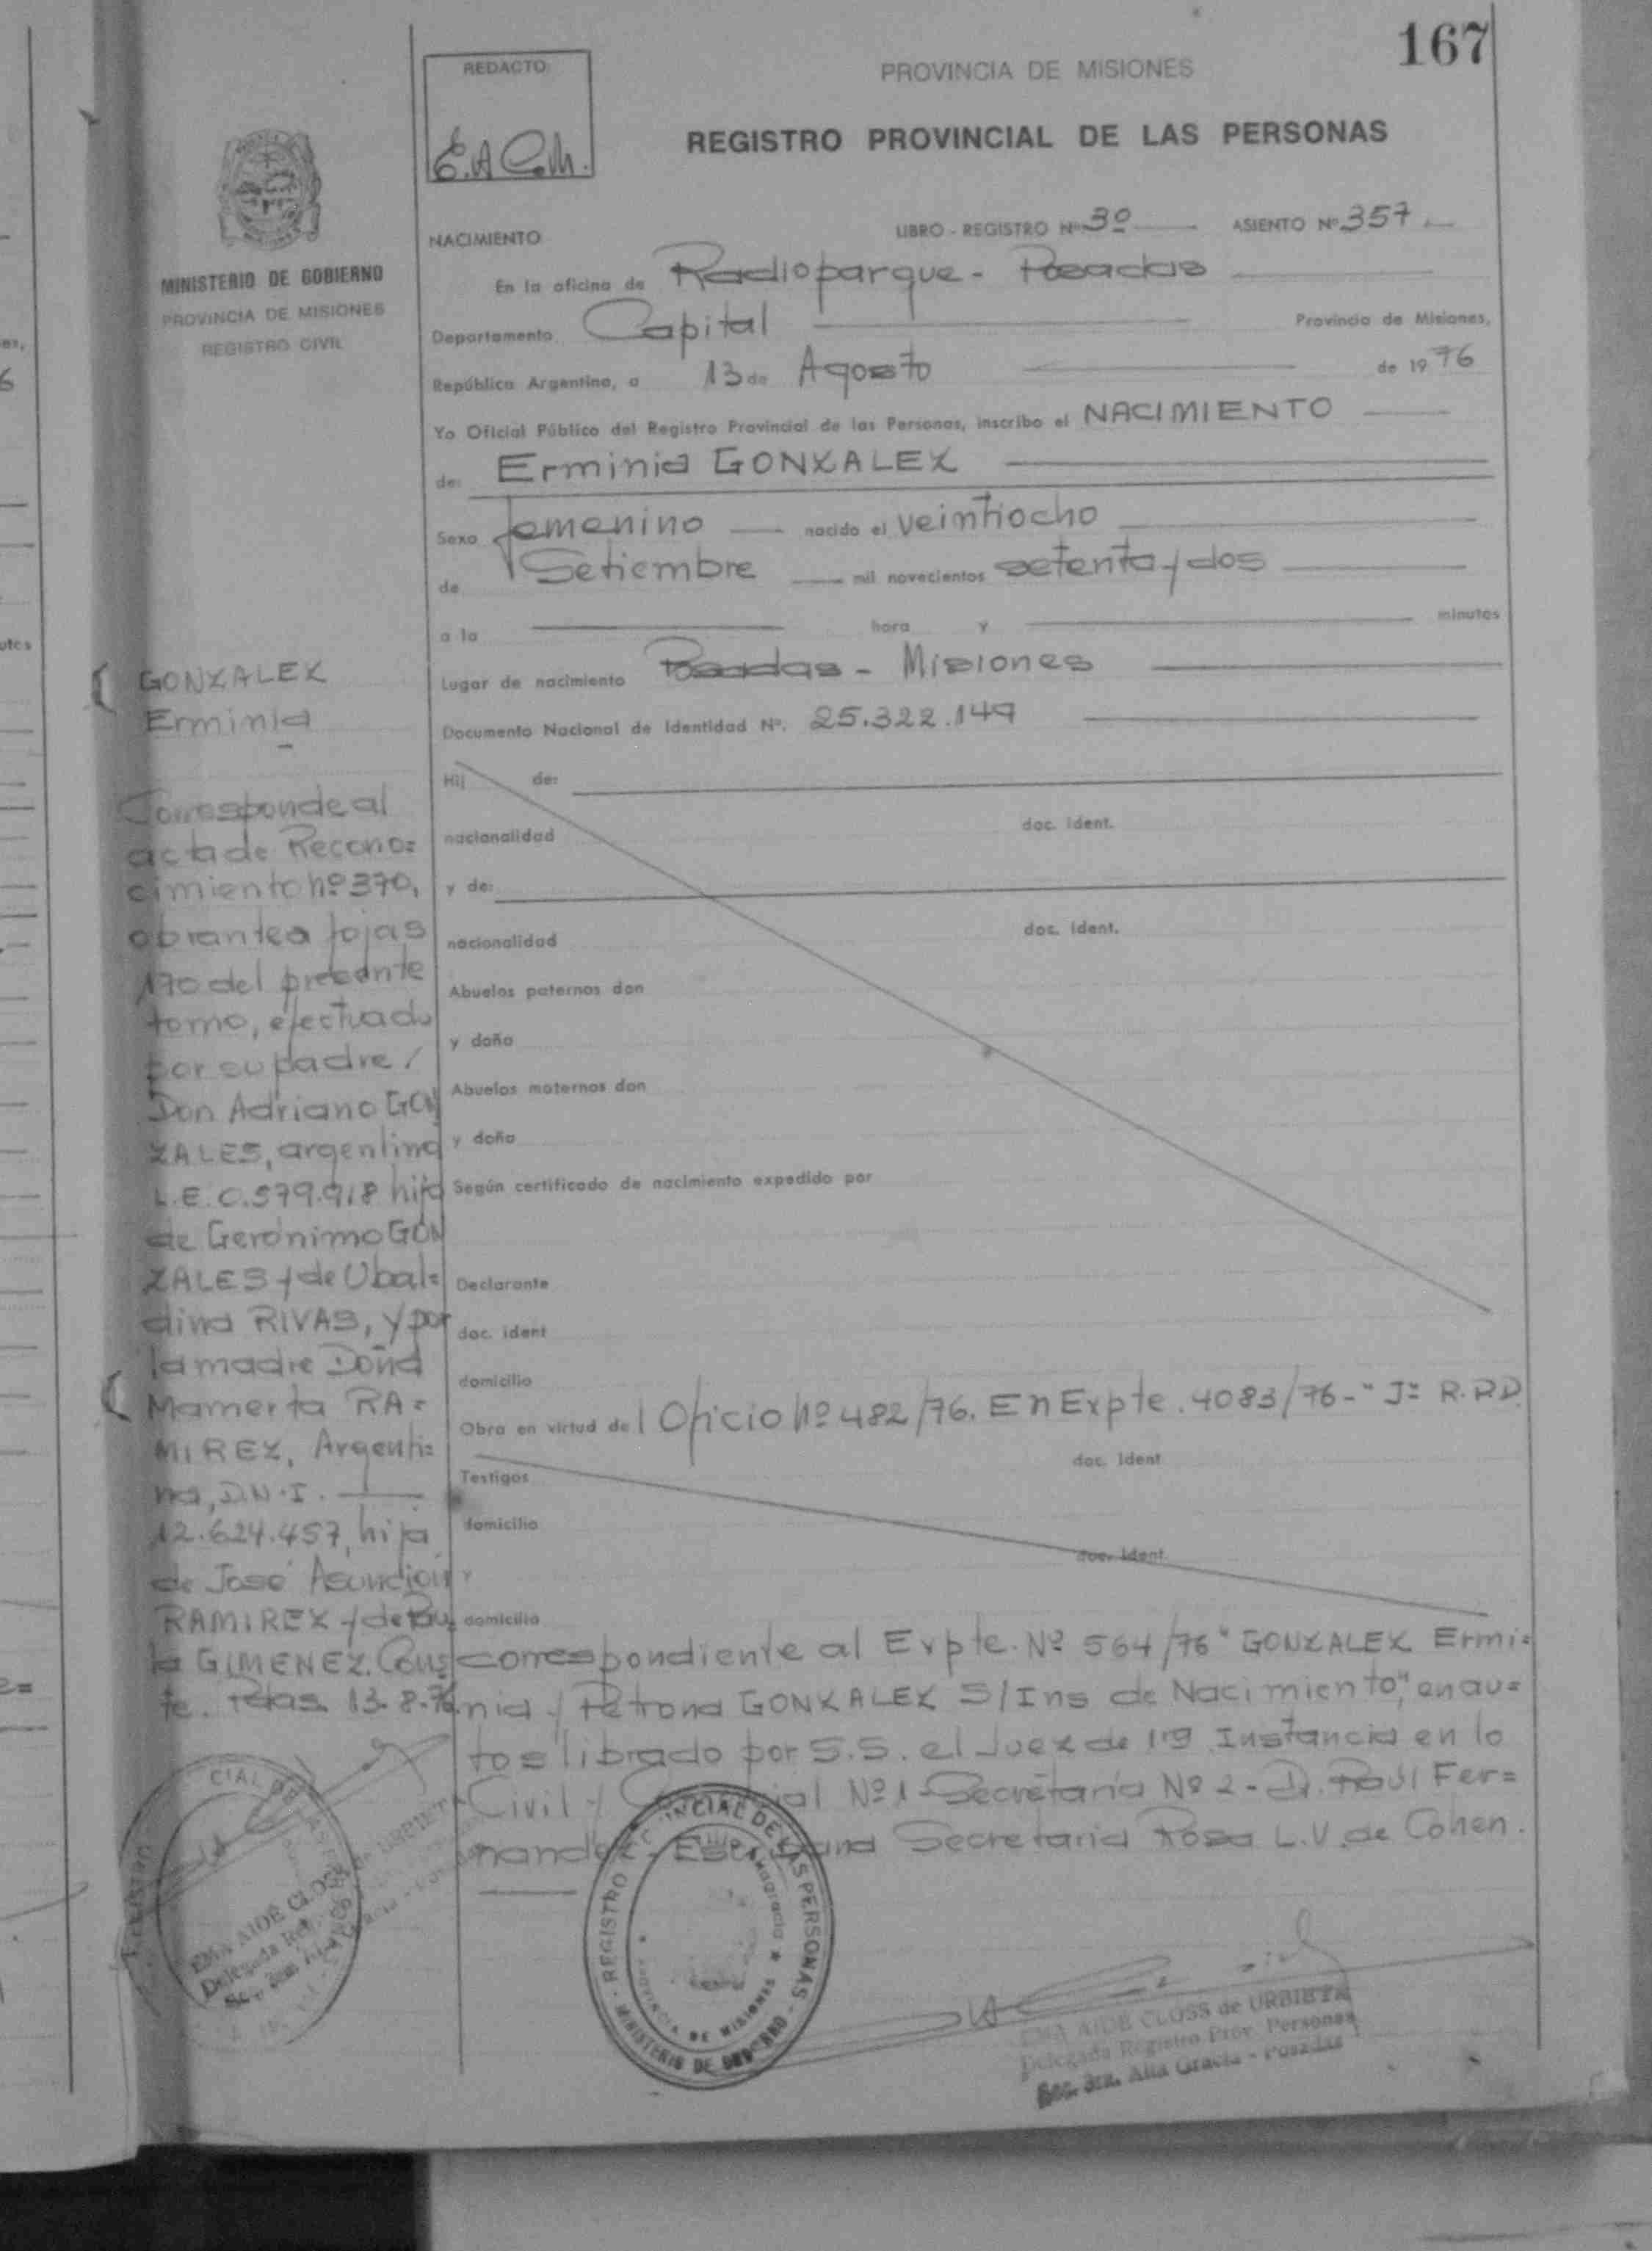 167
REDACTO
E.A.C.M.
PROVINCIA DE MISIONES
REGISTRO PROVINCIAL DE LAS PERSONAS
MINISTERIO DE GOBIERNO
PROVINCIA DE MISIONES
REGISTRO CIVIL
NACIMIENTO
LIBRO - REGISTRO Nº 3º ASIENTO Nº 357
En la oficina de Radioparque - Posadas
Departamento Capital Provincia de Misiones,
República Argentina, a 13 de Agosto de 19 76
Yo Oficial Público del Registro Provincial de las Personas, inscribo el NACIMIENTO
de: Erminia GONZALEZ
Sexo femenino nacido el veintiocho
de Setiembre mil novecientos setenta y dos
a la hora y minutos
Lugar de nacimiento Posadas - Misiones
Documento Nacional de Identidad Nº. 25.322.149
Hij de:
nacionalidad doc. ident.
y de:
nacionalidad doc. ident.
Abuelos paternos don
y doña
Abuelos maternos don
y doña
Según certificado de nacimiento expedido por
Declarante
doc. ident
domicilio
Obra en virtud de l Oficio Nº 482/76. En Expte. 4083/76-" J= R.P.P.
doc. ident
Testigos
domicilio
doc. ident
y
domicilio
correspondiente al Expte. Nº 564/76 "GONZALEZ Ermi=
nia y Petrona GONZALEZ S/Ins de Nacimiento", en au=
tos librado por S.S. el Juez de 1ra Instancia en lo
Civil y Nº 1 Secretaria Nº 2 - Dr. Raúl Fer=
nandez - Secretaria Rosa L.V. de Cohen.
GONZALEZ
Erminia
Corresponde al
acta de Recono=
cimiento nº 370,
obrante a fojas
170 del presente
tomo, efectuado
por su padre /
Don Adriano GON
ZALES, argentino
L.E. 0.579.918 hijo
de Gerónimo GON
ZALES y de Ubal=
dina RIVAS, y por
la madre Doña
Mamerta RA=
MIREZ, Argenti=
na, D.N.I.
12.624.457, hija
de José Asunción
RAMIREZ y de
GIMENEZ. Cons
te. Pdas 13.8.76.
EMA AIDE CLOSS de URBIETA
REGISTRO PROVINCIAL DE LAS PERSONAS
MINISTERIO DE GOBIERNO
PROVINCIA DE MISIONES
EMA AIDE CLOSS de URBIETA
Delegada Registro Prov. Personas
Sec. 3ra. Alta Gracia - Posadas